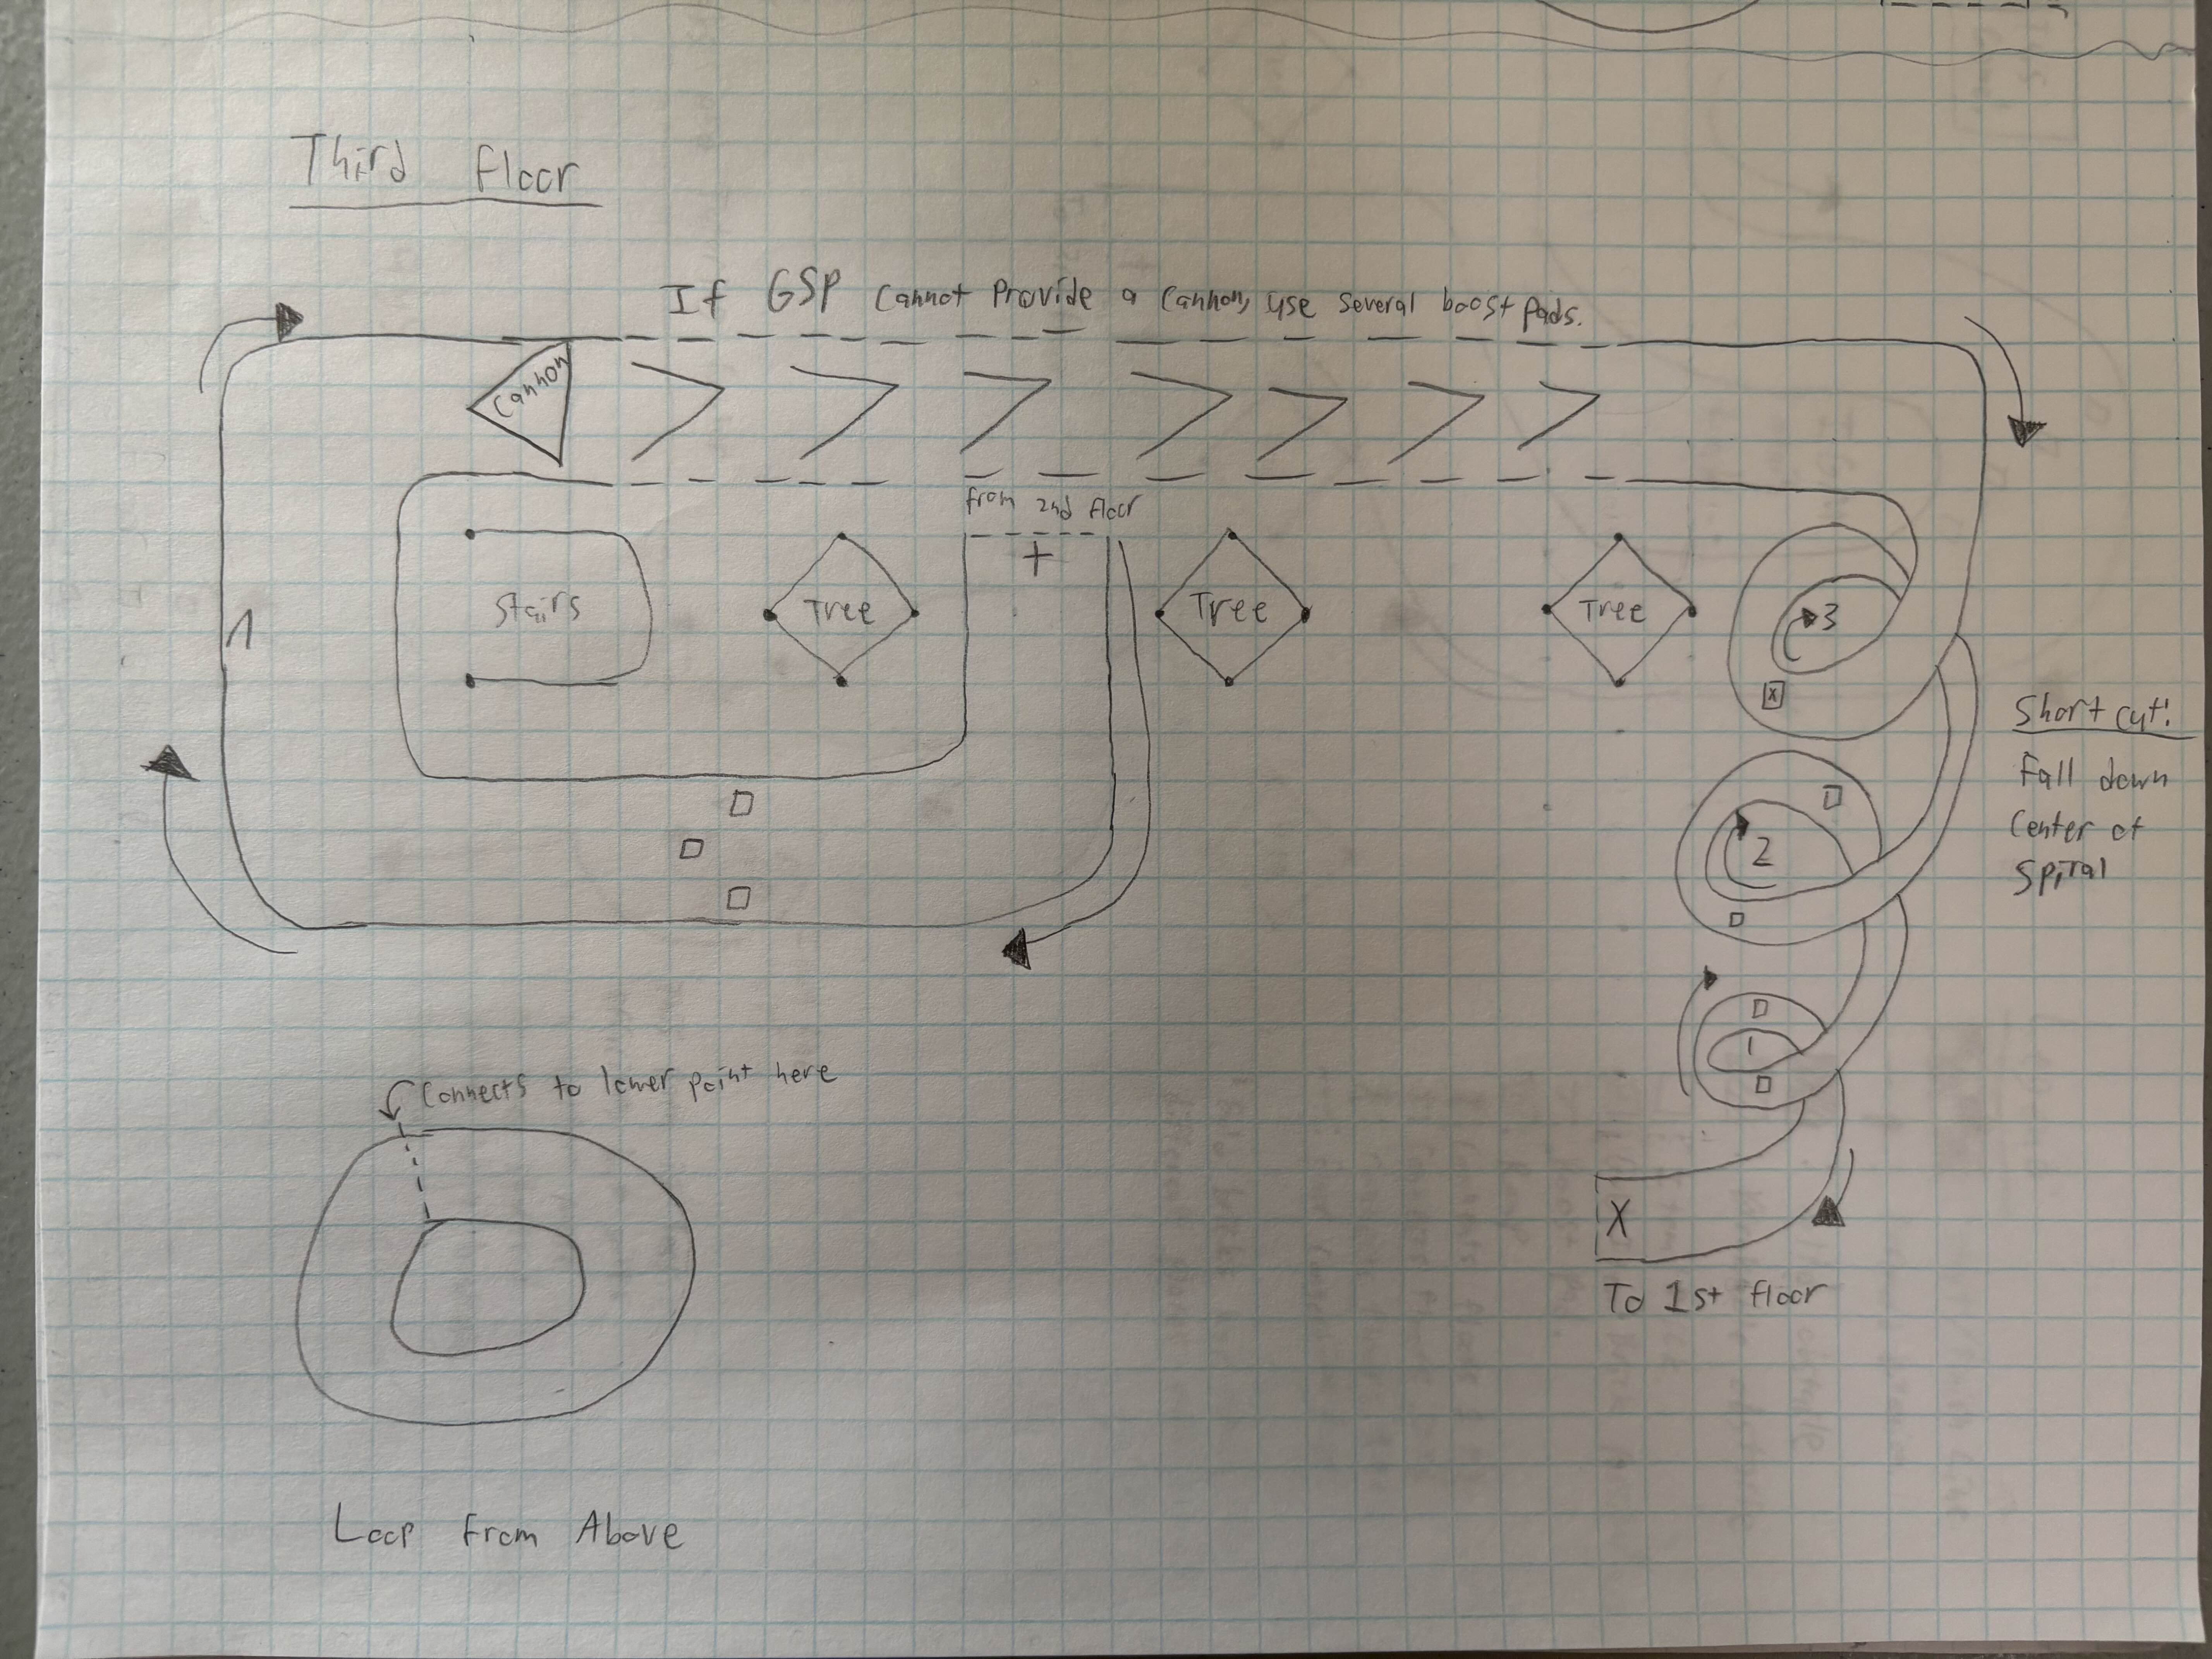 Third Floor
If GSP cannot provide a cannon, use several boost pads.
Cannon
from 2nd floor
+
Stairs
Tree
Tree
Tree
1
3
x
Shortcut!
Fall down
center of
spiral
2
1
Connects to lower point here
X
To 1st floor
Loop from Above